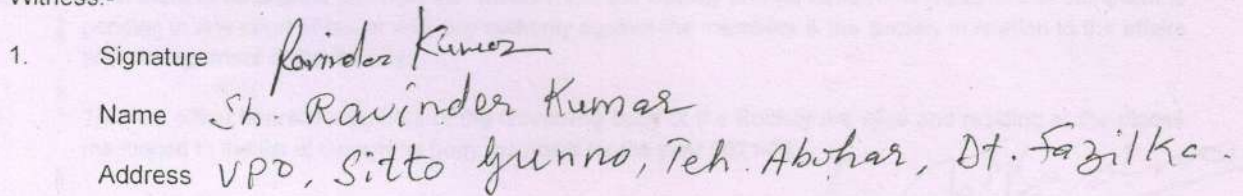 Witness:-
1. Signature Ravinder Kumar
Name Sh. Ravinder Kumar
Address VPO, Sitto Gunno, Teh. Abohar, Dt. Fazilka.